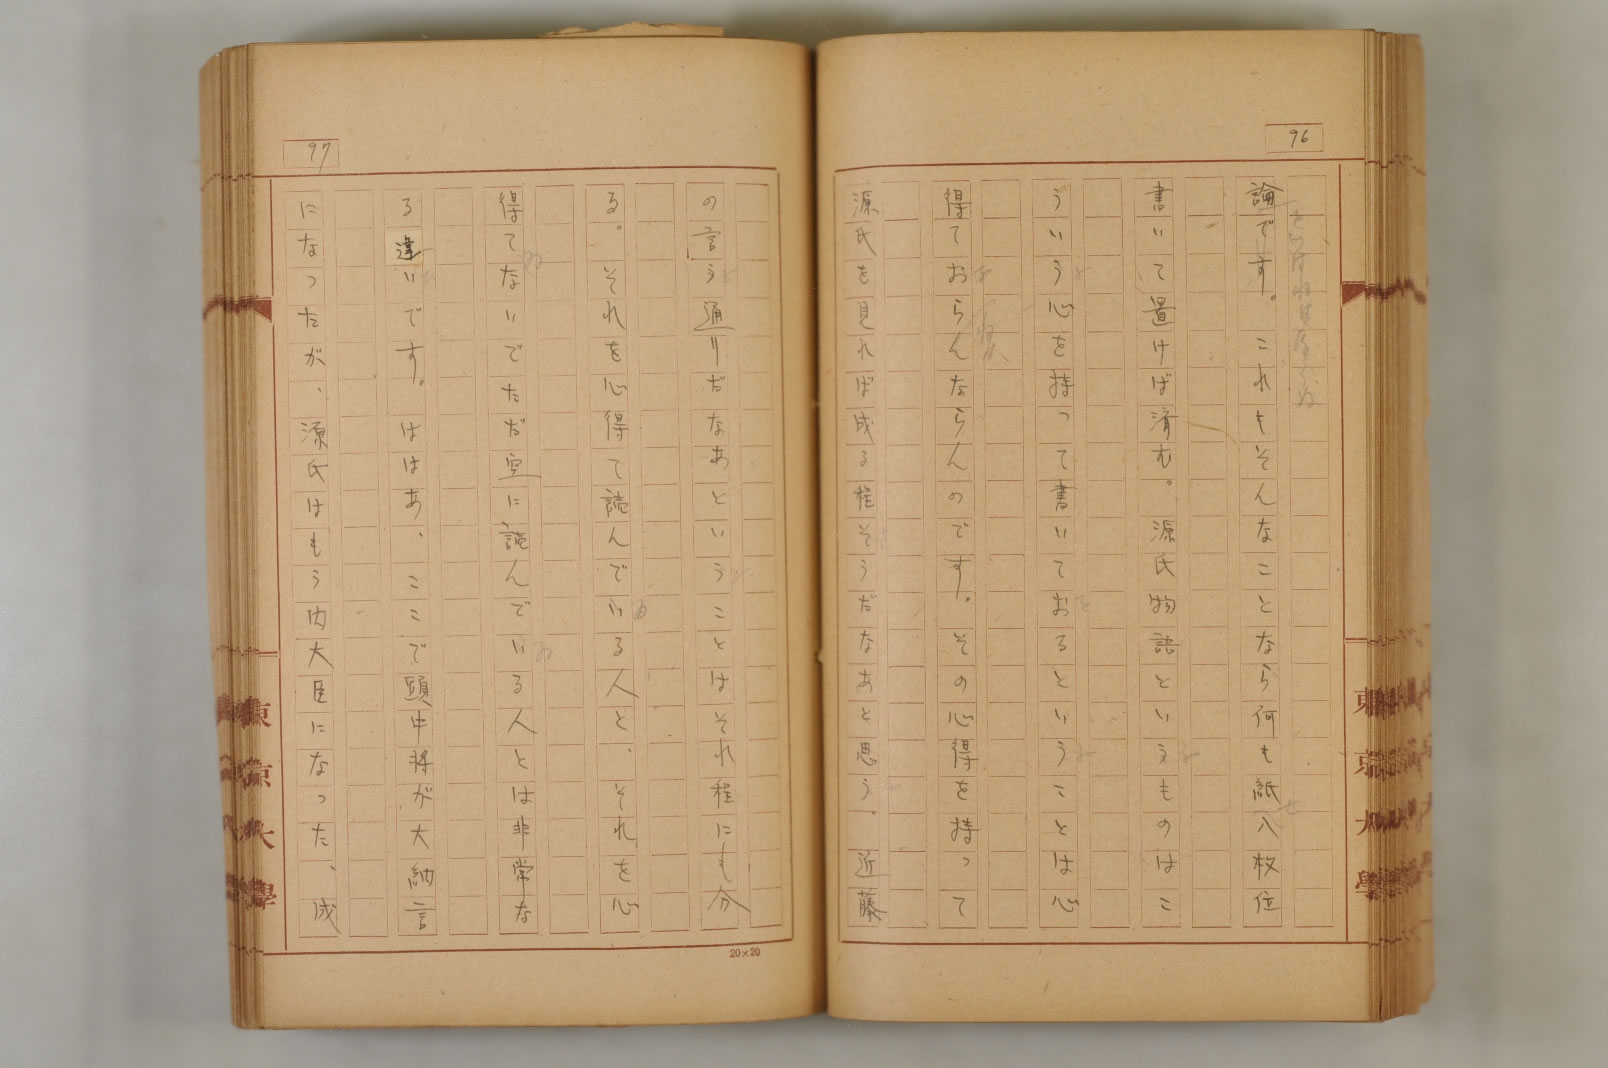 96
論です。これもそんなことなら何も紙八枚位
書いて置けば済む。源氏物語というものはこ
ういう心を持って書いておるということは心
得ておらんならんのです。その心得を持って
源氏を見れば成る程そうだなあと思う。近藤
97
の言う通りだなあということはそれ程にも分
る。それを心得て読んでいる人と、それを心
得てないでただ空に読んでいる人とは非常な
る違いです。ははあ、ここで頭中将が大納言
になったが、源氏はもう内大臣になった、成
20×20
東京大學